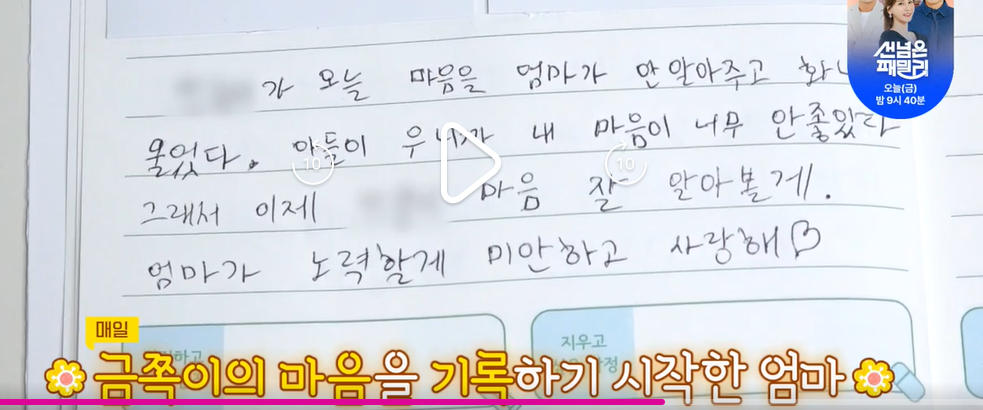 선넘은
패밀리
오늘(금)
밤 9시 40분
가 오늘 마음을 엄마가 안알아주고
울었다. 아들이 우니까 내 마음이 너무 안좋았다
그래서 이제 마음 잘 알아볼게.
엄마가 노력할게 미안하고 사랑해♡
10 10
지우고
매일
금쪽이의 마음을 기록하기 시작한 엄마